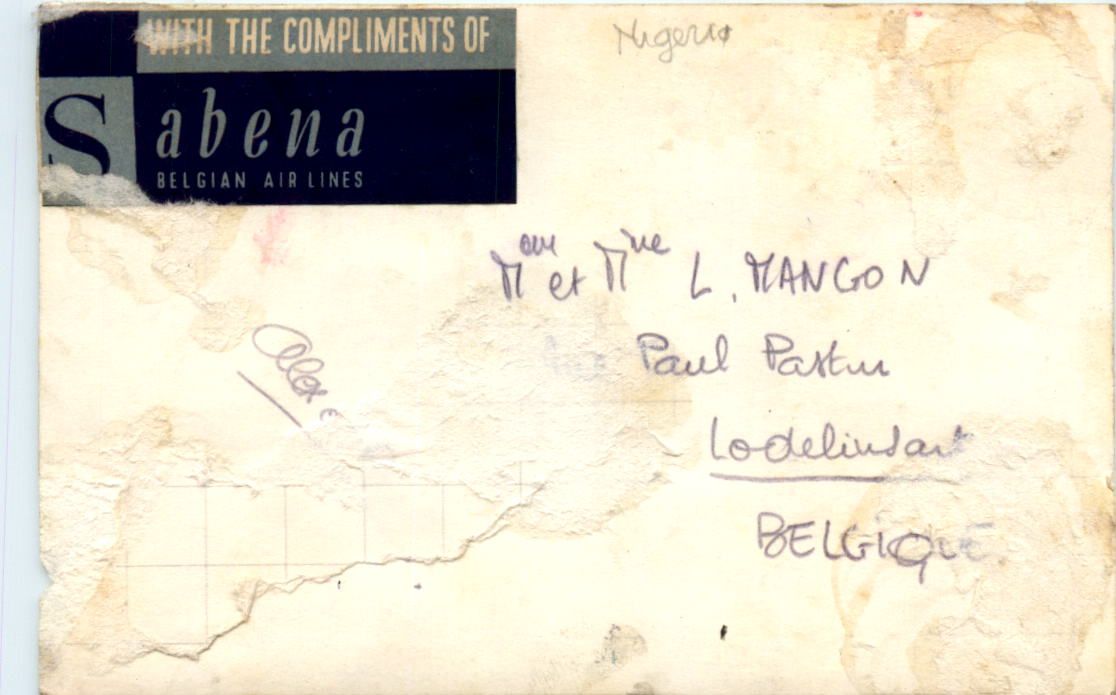 WITH THE COMPLIMENTS OF
Sabena
BELGIAN AIR LINES
Nigeria
et Mme L. MANGON
Paul Pastur
Alex
Lodelinsart
BELGIQUE